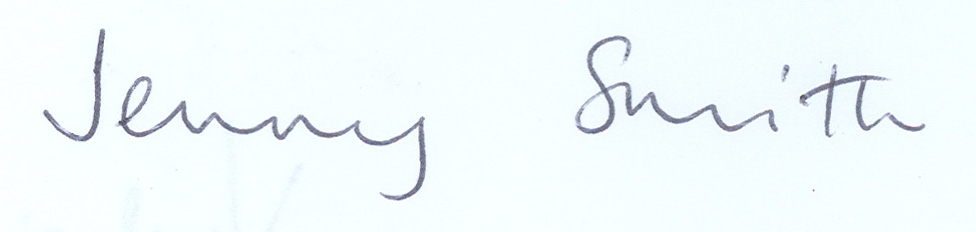 Jenny Smith